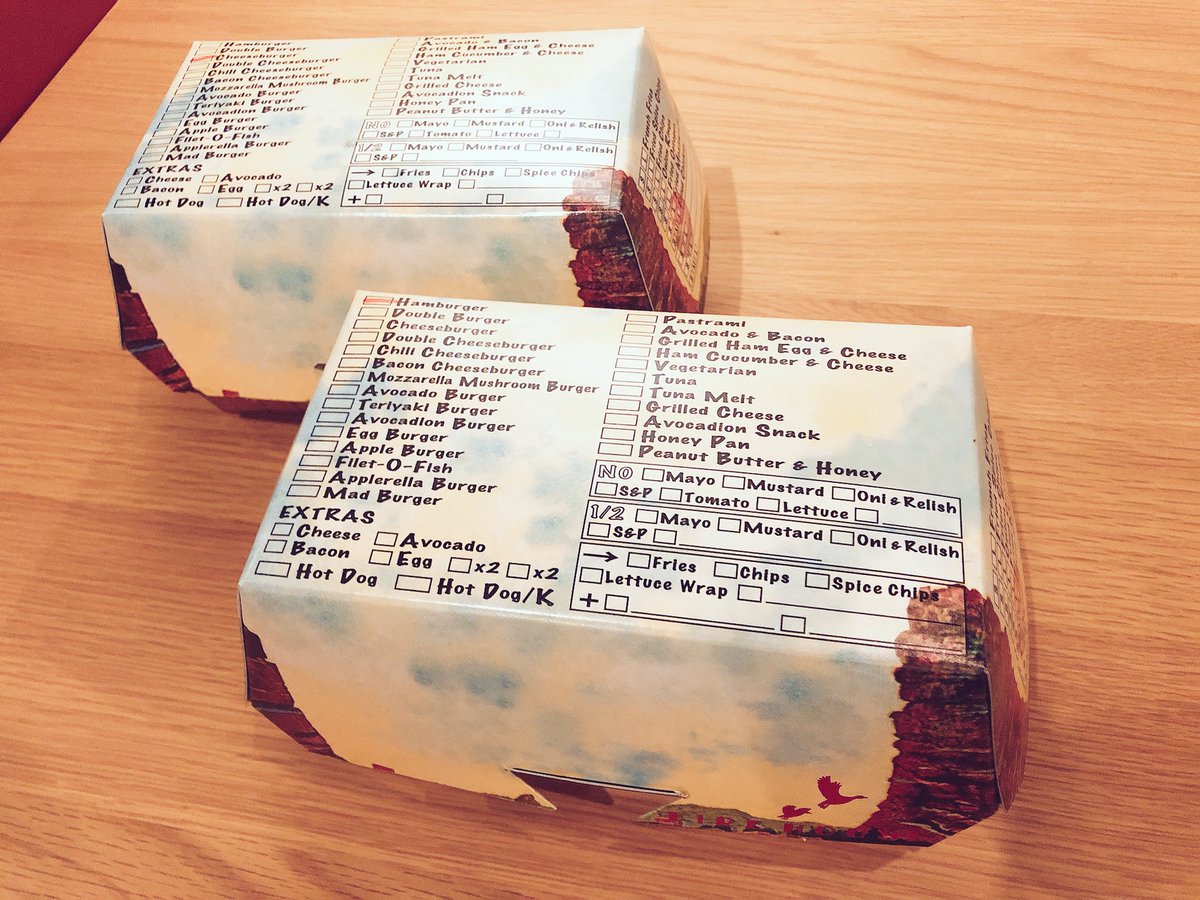 Hamburger
Double Burger
Cheeseburger
Double Cheeseburger
Chili Cheeseburger
Bacon Cheeseburger
Mozzarella Mushroom Burger
Avocado Burger
Teriyaki Burger
Avocadion Burger
Egg Burger
Apple Burger
Filet-O-Fish
Applerella Burger
Mad Burger
EXTRAS
Cheese Avocado
Bacon Egg x2 x2
Hot Dog Hot Dog/K
Pastrami
Avocado & Bacon
Grilled Ham Egg & Cheese
Ham Cucumber & Cheese
Vegetarian
Tuna
Tuna Melt
Grilled Cheese
Avocadion Snack
Honey Pan
Peanut Butter & Honey
NO Mayo Mustard Oni & Relish
S&P Tomato Lettuce
1/2 Mayo Mustard Oni & Relish
S&P
→ Fries Chips Spice Chips
Lettuce Wrap
+
Hamburger
Double Burger
Cheeseburger
Double Cheeseburger
Chili Cheeseburger
Bacon Cheeseburger
Mozzarella Mushroom Burger
Avocado Burger
Teriyaki Burger
Avocadion Burger
Egg Burger
Apple Burger
Filet-O-Fish
Applerella Burger
Mad Burger
EXTRAS
Cheese Avocado
Bacon Egg x2 x2
Hot Dog Hot Dog/K
Pastrami
Avocado & Bacon
Grilled Ham Egg & Cheese
Ham Cucumber & Cheese
Vegetarian
Tuna
Tuna Melt
Grilled Cheese
Avocadion Snack
Honey Pan
Peanut Butter & Honey
NO Mayo Mustard Oni & Relish
S&P Tomato Lettuce
1/2 Mayo Mustard Oni & Relish
S&P
→ Fries Chips Spice Chips
Lettuce Wrap
+